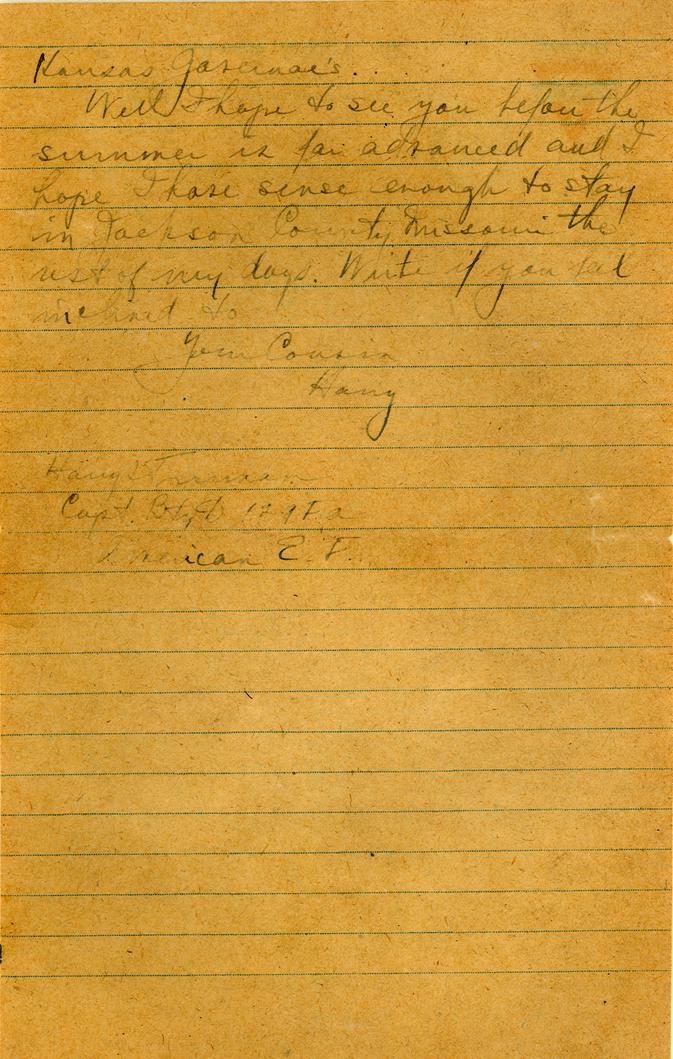 Kansas Governor's.
Well I hope to see you before the
summer is far advanced and I
hope I have sense enough to stay
in Jackson County Missouri the
rest of my days. Write if you feel
inclined to
Your Cousin
Harry
Harry S Truman
Capt. Bty D 129 F.A
American E. F.